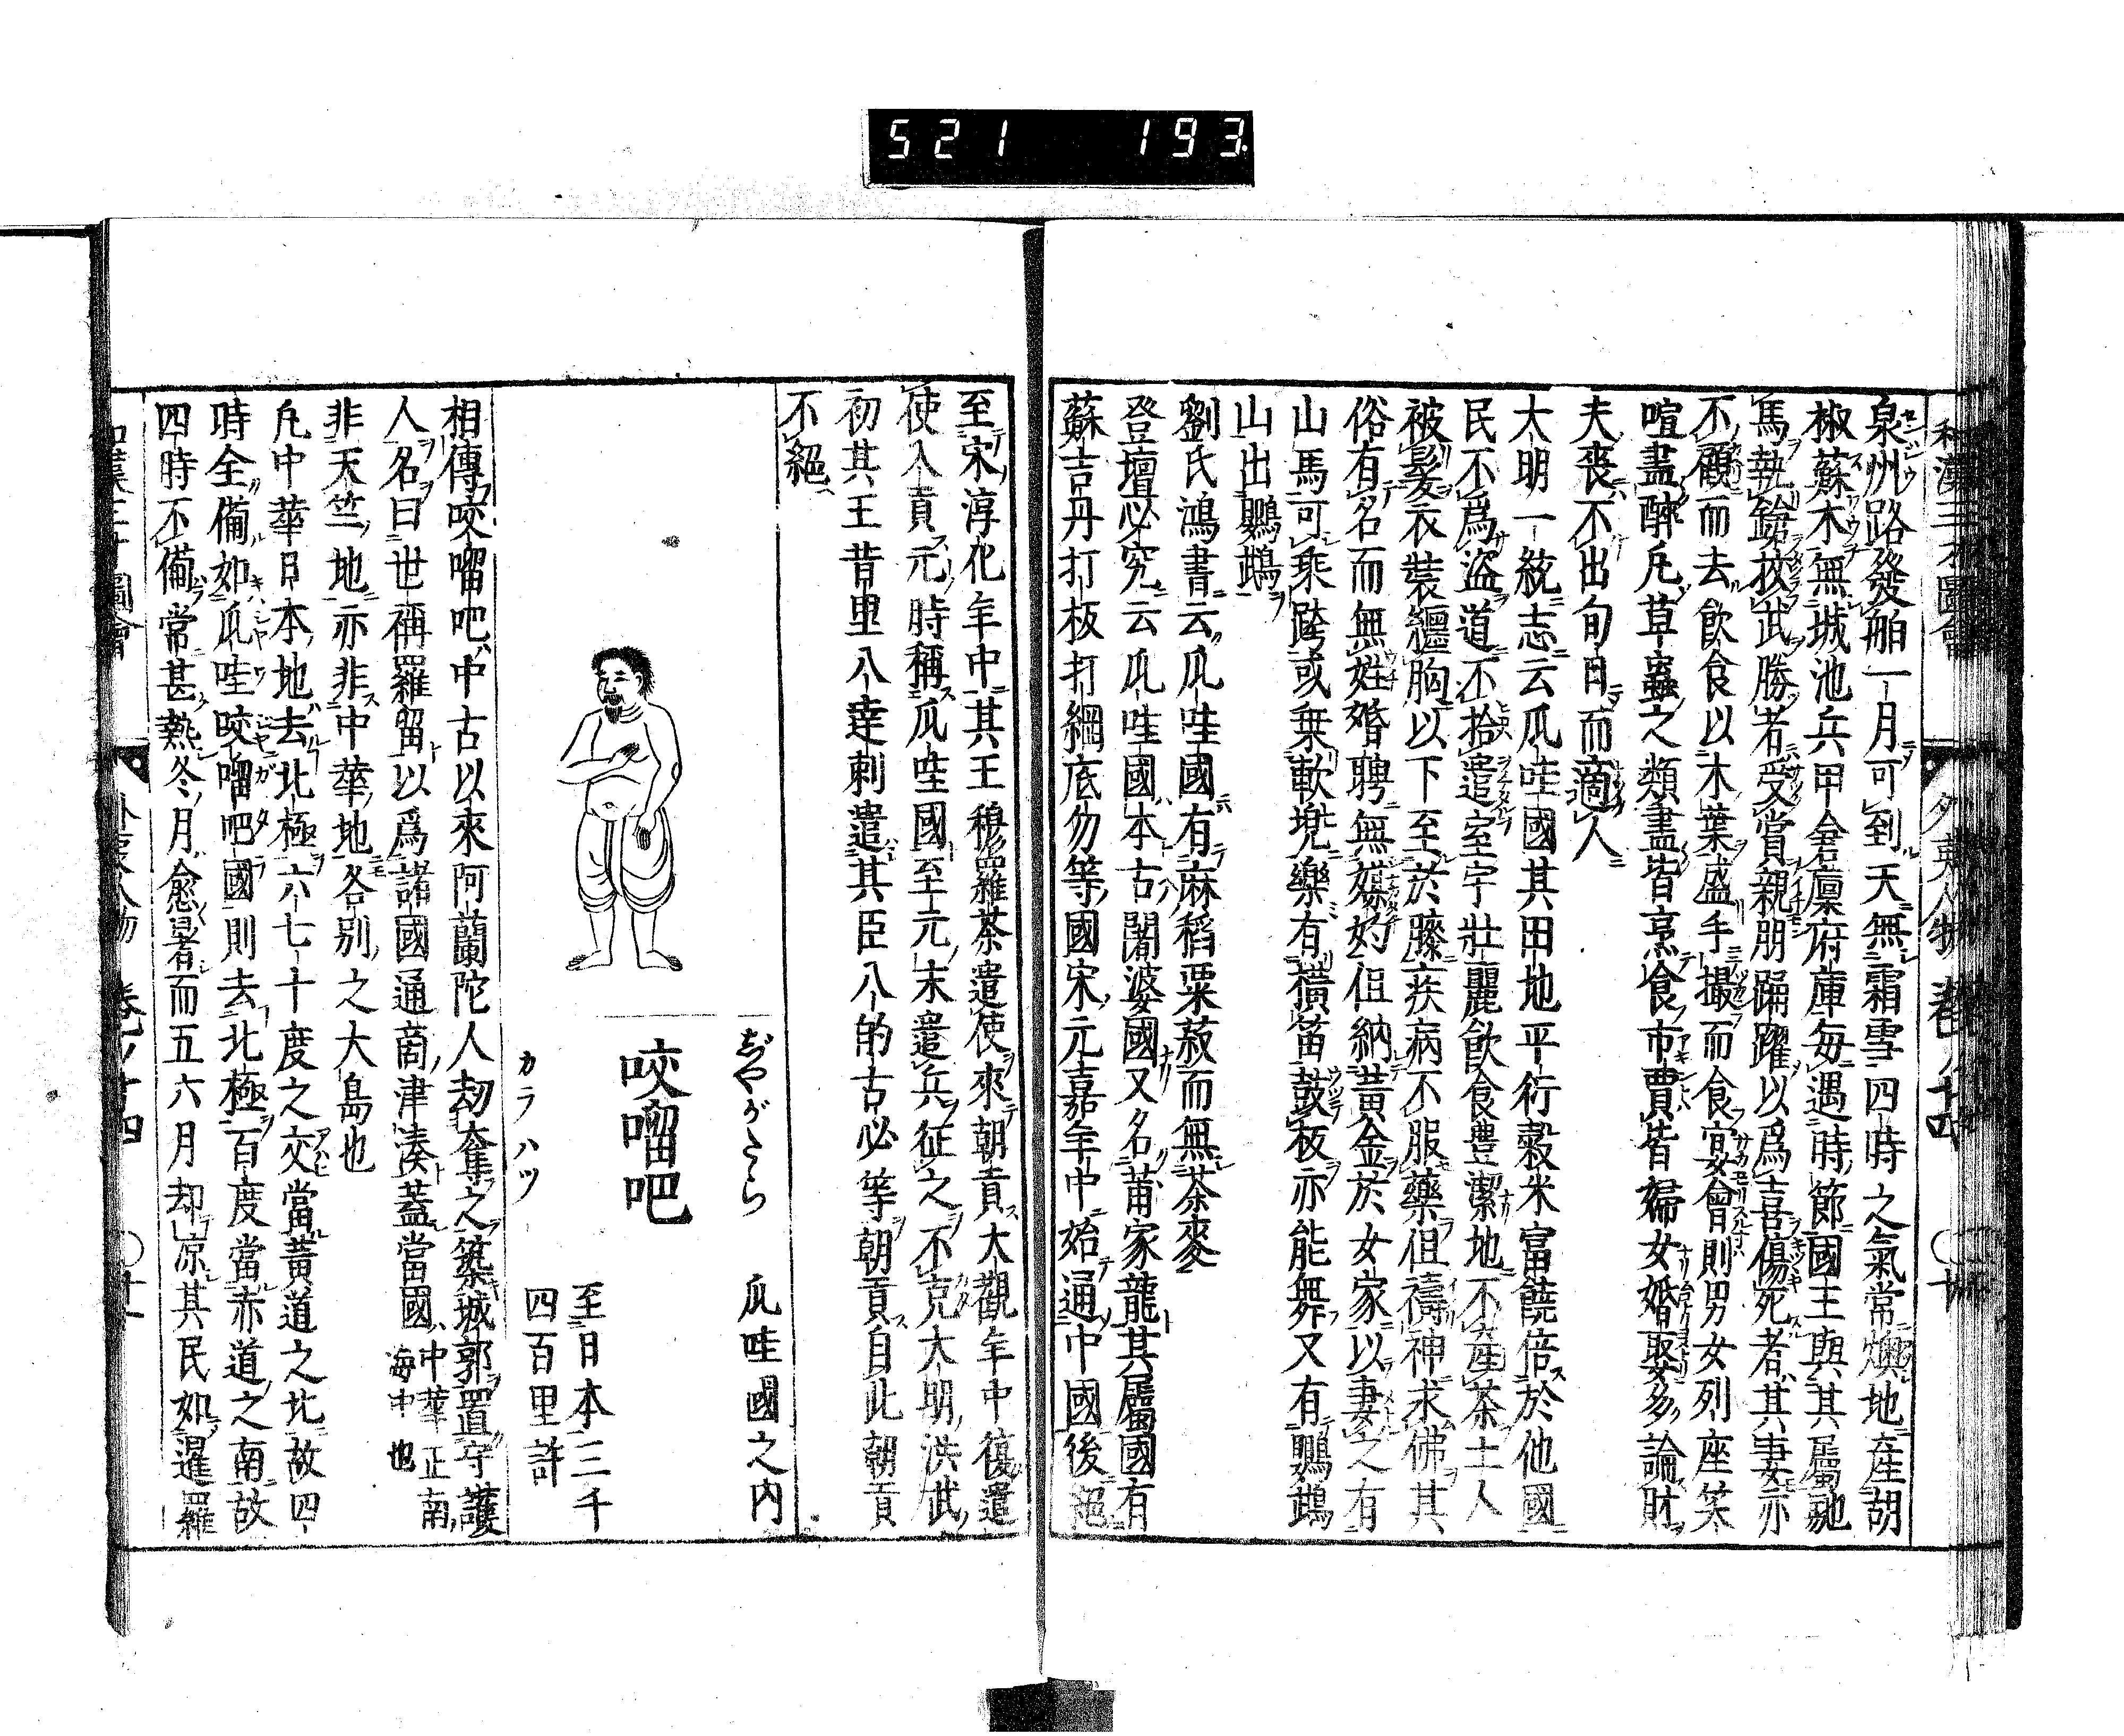 521 193.
泉州路發舶一月可到天無霜雪四時之氣常燠地産胡
椒蘇木無城池兵甲倉廩府庫毎遇時節國王與其屬馳
馬執鎗校武勝者受賞親朋踊躍以爲喜傷死者其妻亦
不顧而去飲食以木葉盛手撮而食宴會則男女列座笑
喧盡醉凡草蟲之類盡皆烹食市賈皆婦女婚娶多論財
夫喪不出旬日而適人
大明一統志云瓜哇國其田地平行穀米富饒倍於他國
民不爲盗道不拾遺室宇壯麗飲食豊潔地不産茶土人
被髪衣裝纏胸以下至於膝疾病不服藥但禱神求佛其
俗有名而無姓婚聘無媒妁但納黃金於女家以妻之有
山馬可乘跨或乗軟兠樂有横笛鼓板亦能舞又有鸚鵡
山出鸚鵡
劉氏鴻書云瓜哇國有麻稻粟菽而無茶麥
登壇必究云瓜哇國本古闍婆國又名莆家龍其屬國有
蘇吉丹打板打綱底勿等國宋元嘉年中始通中國後絕
至宋淳化年中其王穆羅茶遣使來朝貢大觀年中復遣
使入貢元時稱瓜哇國至元末遣兵征之不克大明洪武
初其王昔里八達剌遣其臣八的古必等朝貢自此朝貢
不絕
ぢやがたら 瓜哇國之内
咬𠺕吧
至日本三千
四百里許
カラハツ
相傳咬𠺕吧中古以來阿蘭陀人刧奪之築城郭置守護
人名曰世稱羅留以爲諸國通商津湊蓋當國中華正南海中也
非天竺地亦非中華地各別之大島也
凡中華日本地去北極六七十度之交當黃道之北故四
時全備如瓜哇咬𠺕吧國則去北極百度當赤道之南故
四時不備常甚熱冬月愈暑而五六月却凉其民如暹羅